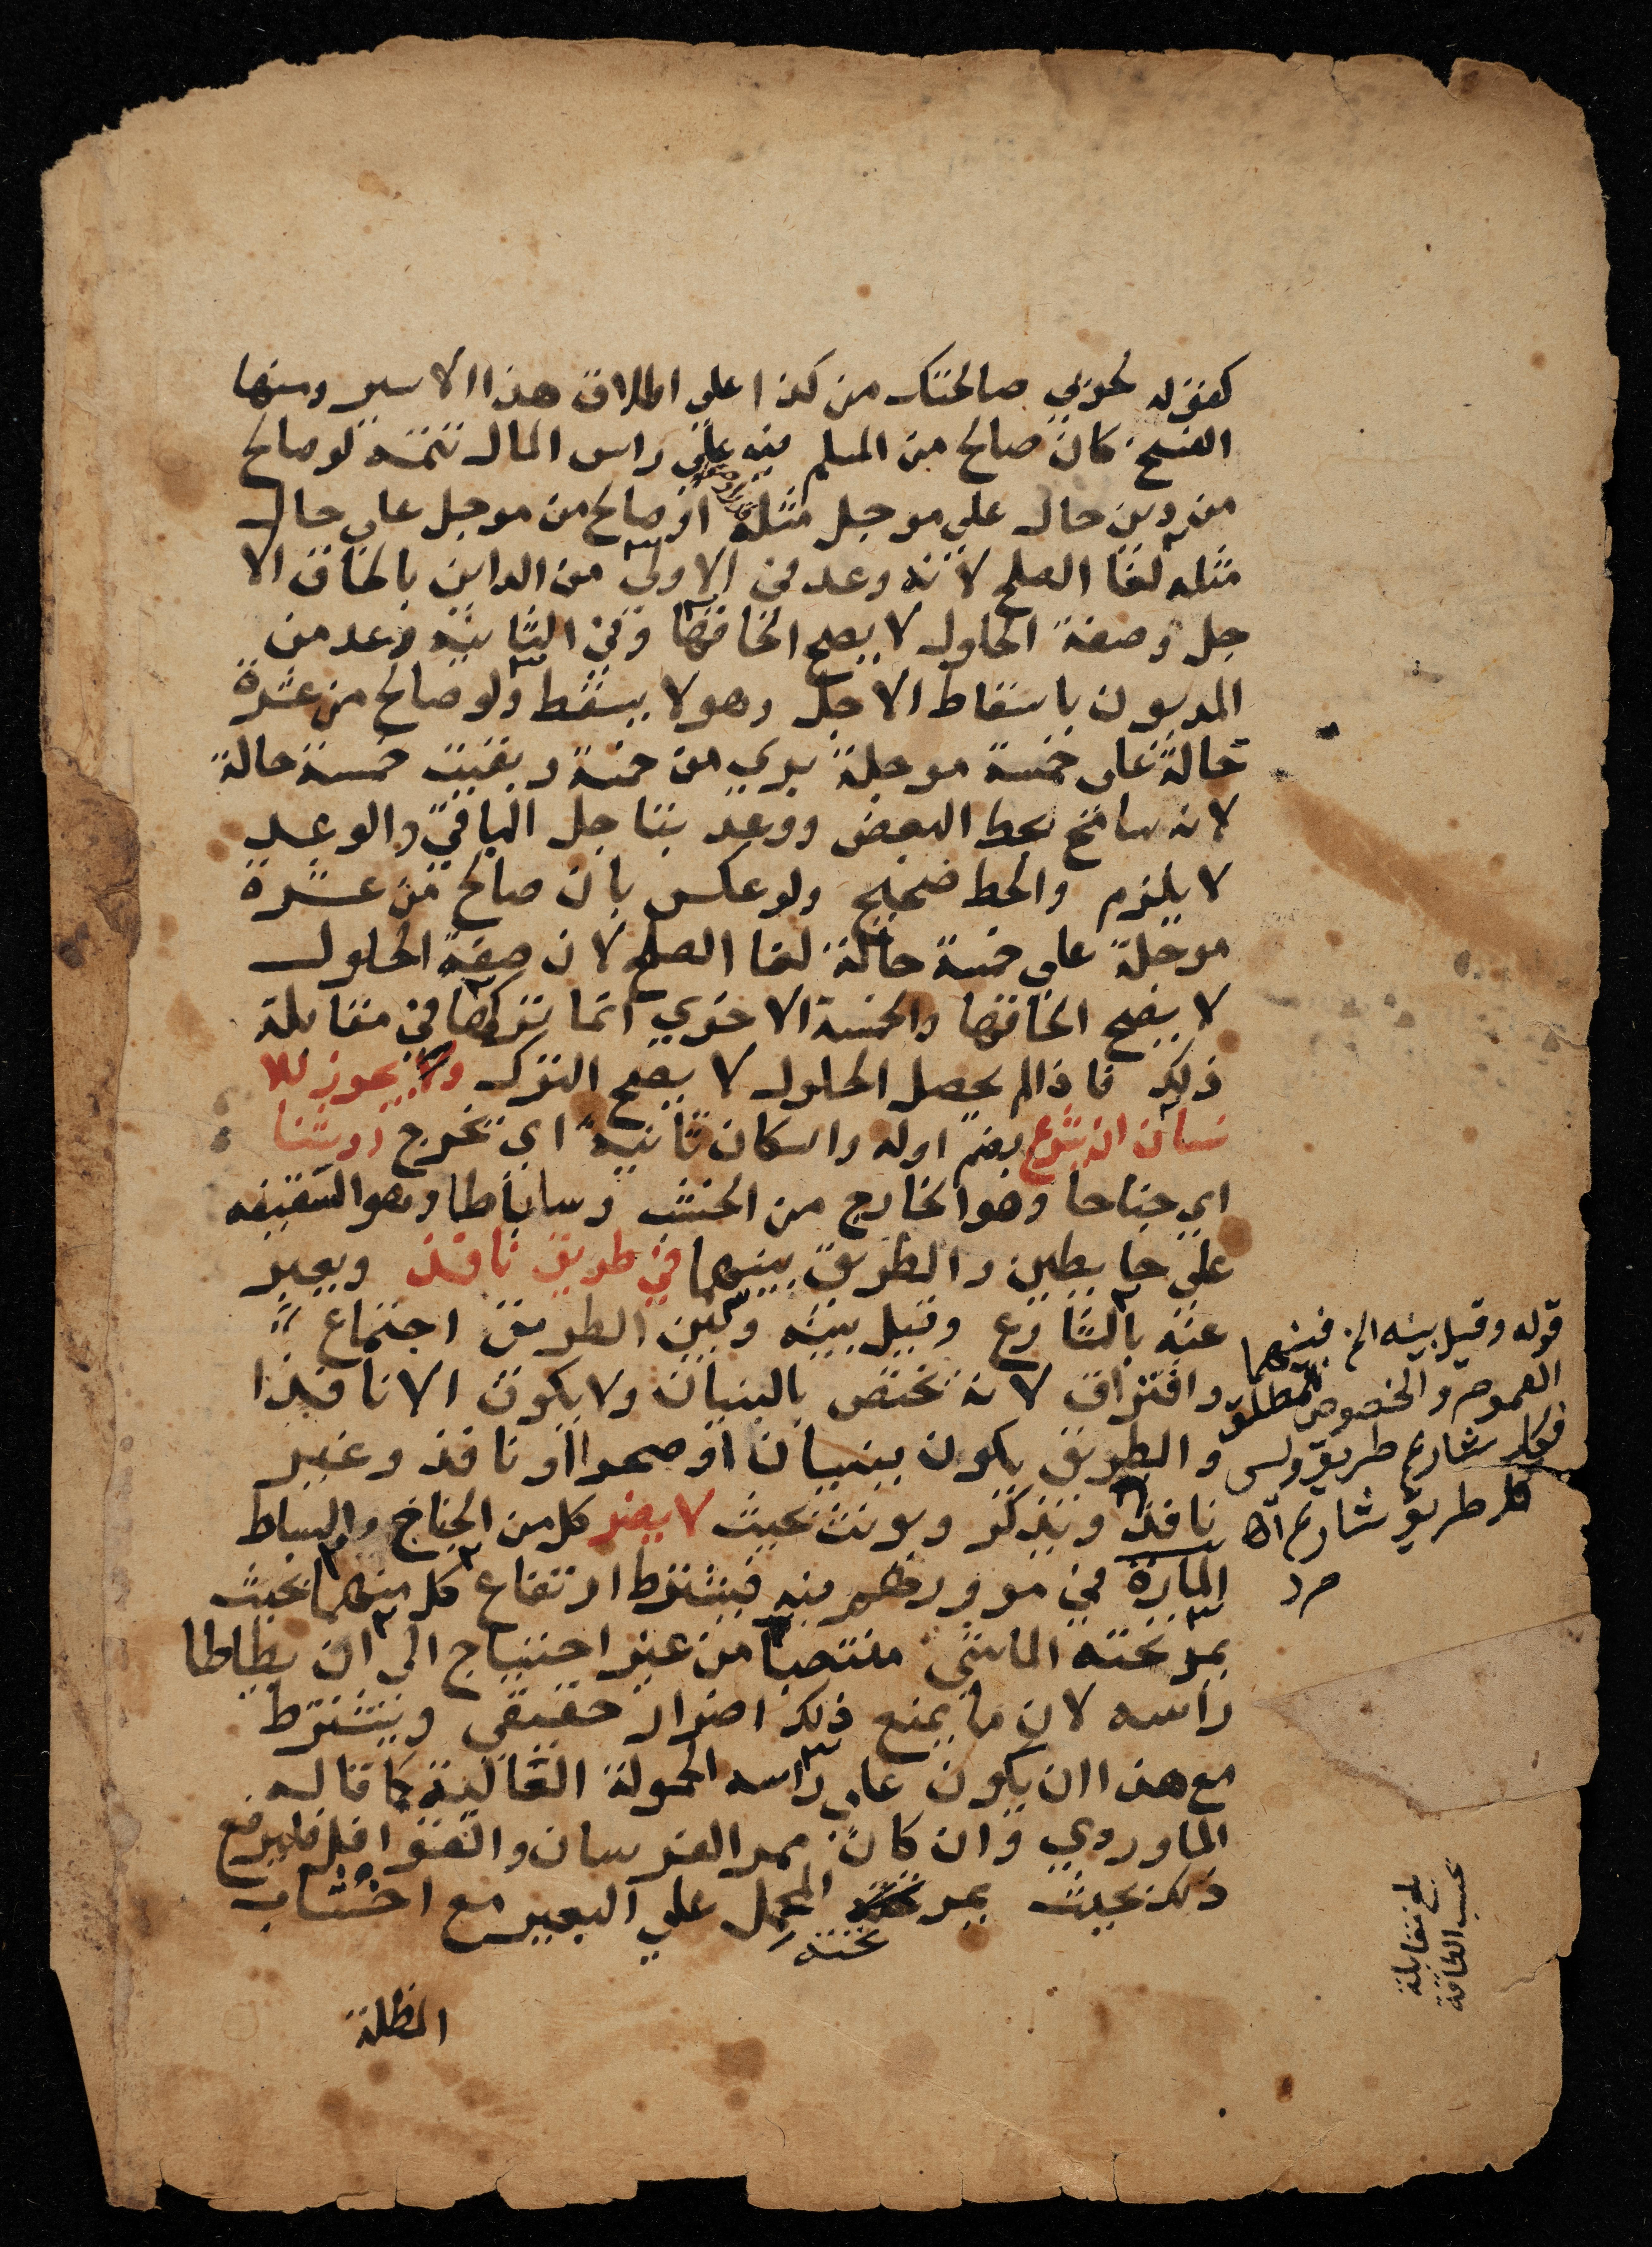 كقوله لحربي صالحتك من كذا على اطلاق هذا الاسير ومنها
الفسخ كان صالح من المسلم فيه على راس المال تتمة لو صالح
من دين حال على موجل مثله او صالح من موجل على حال
مثله لغا الصلح لانه وعد في الاولى من الداين بالحاق الا
جل وصفة الحلول لا يصح الحاقها وفي الثانية وعد من
المديون باسقاط الاجل وهو لا يسقط ولو صالح من عشرة
حالة على خمسة موجلة بري من خمسة وبقيت خمسة حالة
لانه سامح بحط البعض ووعد بتاجل الباقي والوعد
لا يلزم والحط صحيح ولو عكس بان صالح من عشرة
موجلة على خمسة حالة لغا الصلح لان صفة الحلول
لا يصح الحاقها والخمسة الاخرى انما تركها في مقابلة
ذلك فاذا لم يحصل الحلول لا يصح الترك ويجوز للا
نسان ان يشرع بضم اوله واسكان ثانيه اي يخرج روشنا
اي جناحا وهو الخارج من الخشب وساباطا وهو السقيفه
على حايطين والطريق بينهما في طريق نافذ ويعبر
عنه بالشارع وقيل بينه وبين الطريق اجتماع
وافتراق لانه يختص بالبنيان ولا يكون الا نافذا
والطريق يكون ببنيان او صحرا او نافذ وغير
نافذ ويذكر ويونث بحيث لا يضر كل من الجناح والساباط
المارة في مرورهم فيه فيشترط ارتفاع كل منهما بحيث
يمر تحته الماشي منتصبا من غير احتياج الى ان يطاطا
راسه لان ما يمنع ذلك اضرار حقيقي ويشترط
مع هذا ان يكون على راسه الحمولة الغالبة كما قاله
الماوردي وان كان ممر الفرسان والقوافل فليرفع
ذلك بحيث يمر تحته المحمل على البعير مع اخشاب
المظلة
قوله وقيل بينه الخ فبينهما
العموم والخصوص المطلق
فكل شارع طريق وليس
كل طريق شارع اه
م ر
بلغ مقابلة
بحسب الطاقة